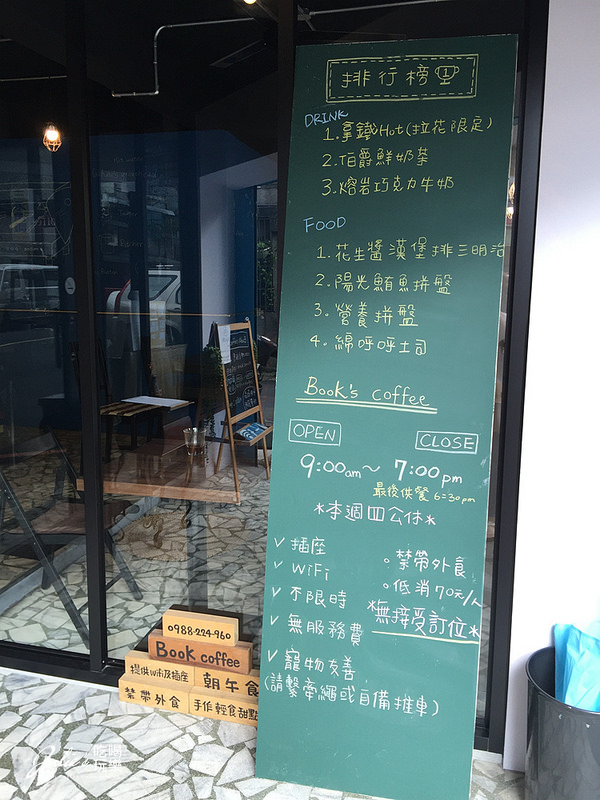 排行榜 1
DRINK
1.拿鐵Hot(拉花限定)
2.伯爵鮮奶茶
3.熔岩巧克力牛奶
FOOD
1.花生醬漢堡排三明治
2.陽光鮪魚拼盤
3.營養拼盤
4.綿呼呼土司
Book's coffee
OPEN CLOSE
9:00am～7:00pm
最後供餐 6:30pm
*本週四公休*
✓插座
✓WiFi
✓不限時
✓無服務費
✓寵物友善
(請繫牽繩或自備推車)
。禁帶外食
。低消70元/人
*無接受訂位*
0988-224-960
Book coffee
提供wifi及插座
朝午食
禁帶外食
手作輕食甜點
吃喝玩樂